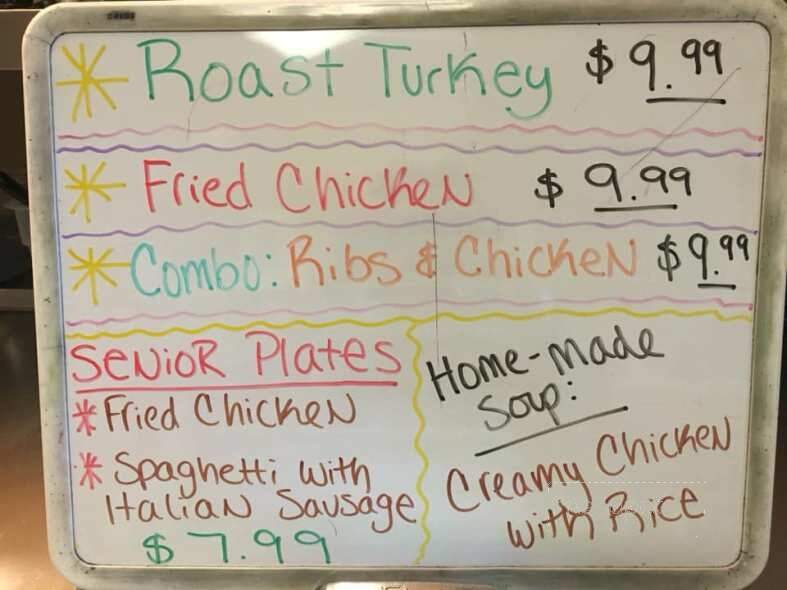 Roast Turkey $9.99
Fried Chicken $9.99
Combo: Ribs & Chicken $9.99
Senior Plates
* Fried Chicken
* Spaghetti with
Italian Sausage
$7.99
Home-made
Soup:
Creamy Chicken
with Rice